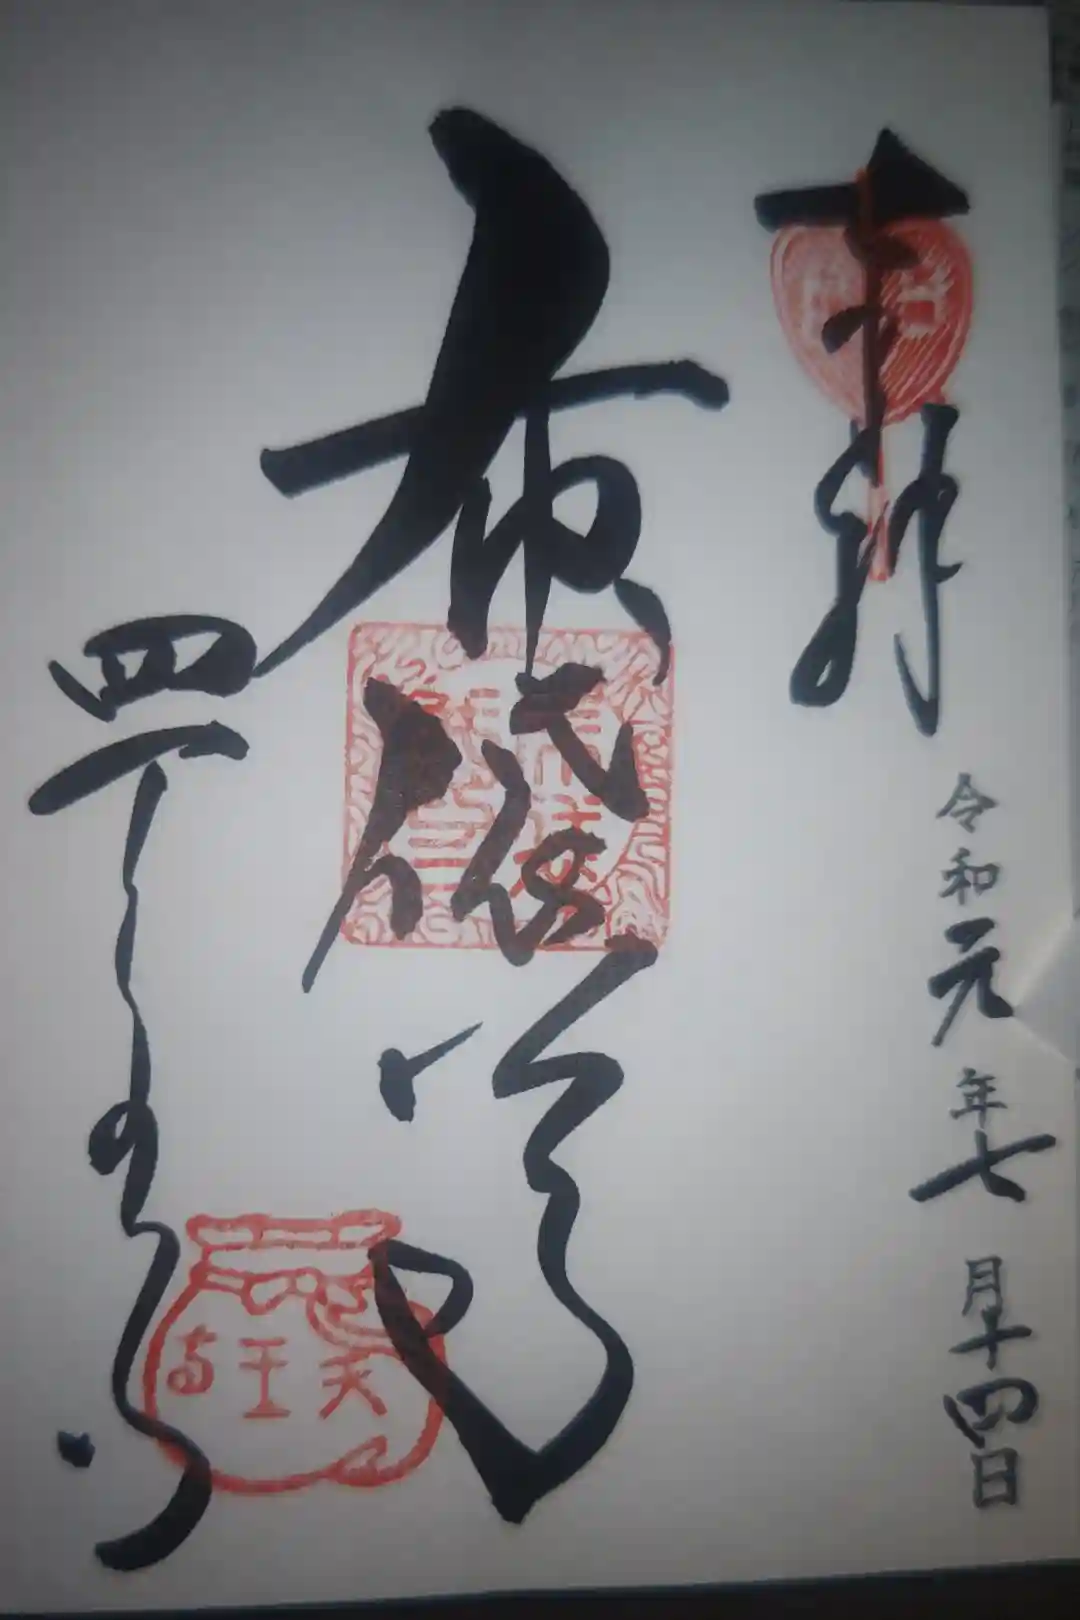 奉拝
令和元年七月十四日
布袋尊
四天王寺
天王寺